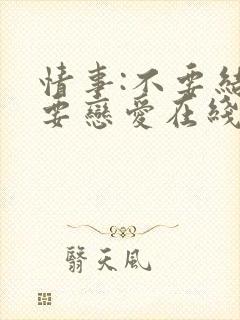 情事:不要結
要戀愛在綫
翳天風